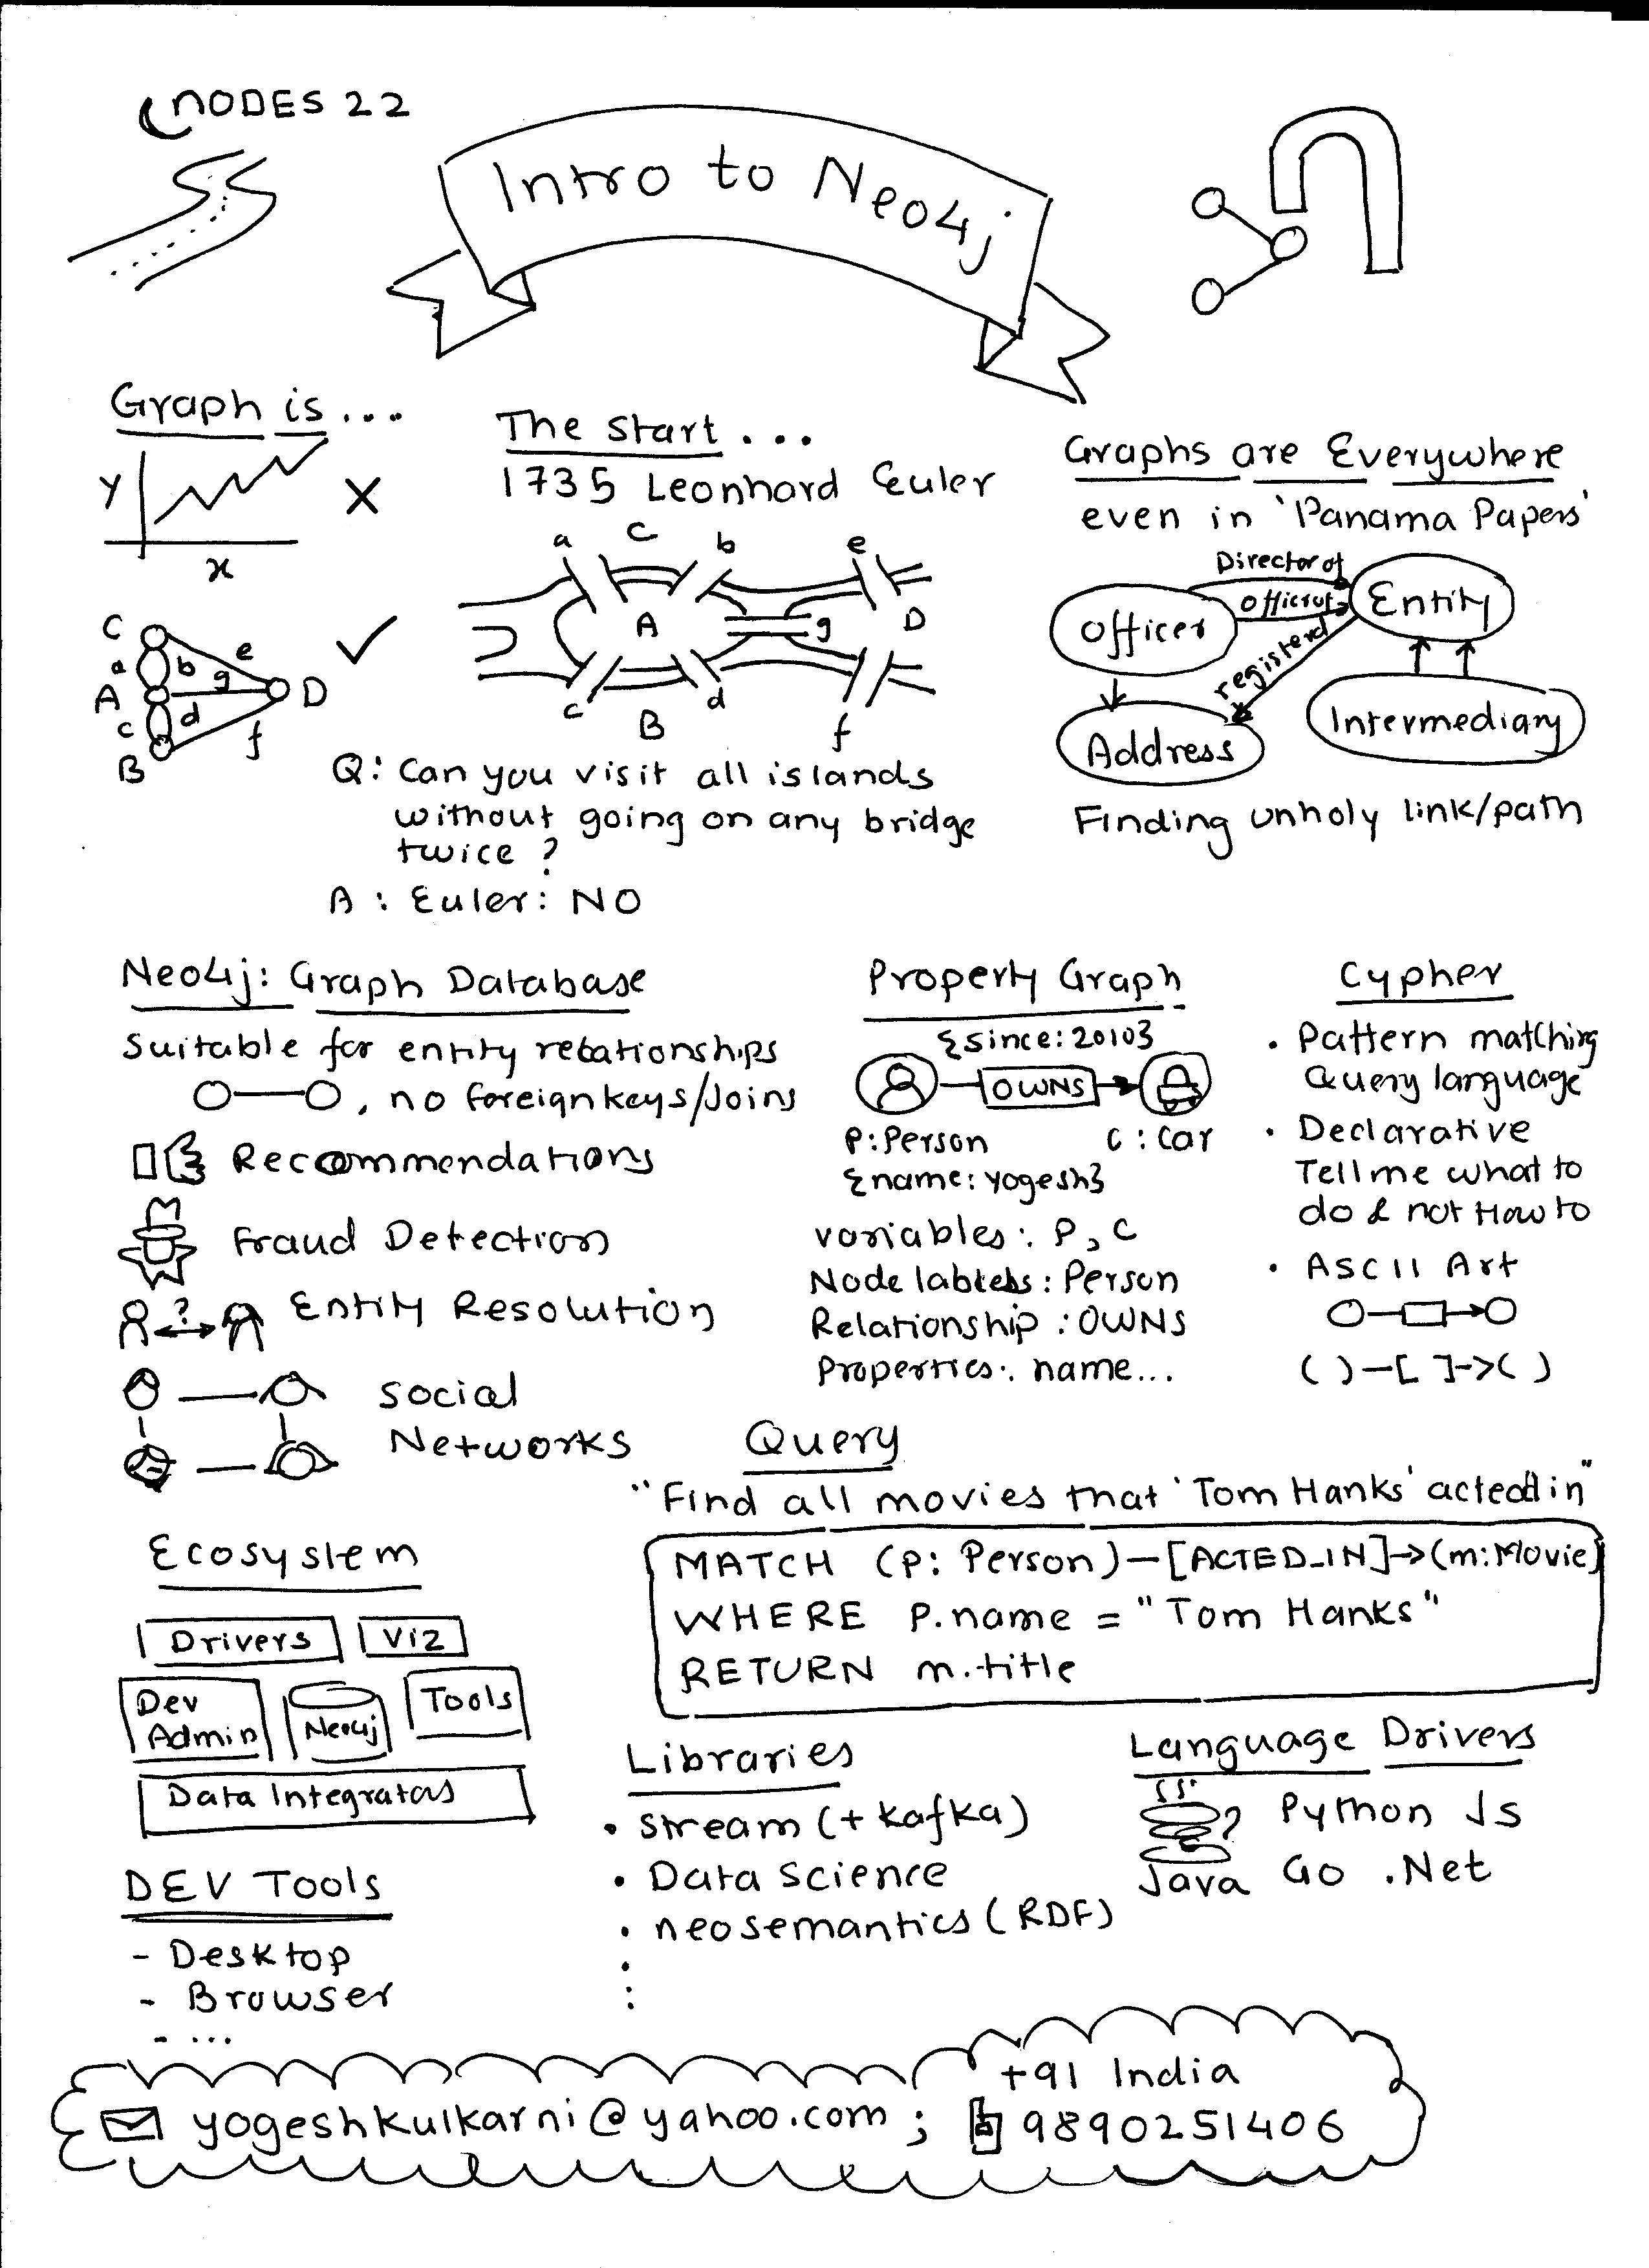 NODES 22
Intro to Neo4j
Graph is...
y
x
X
C
a
b
e
g
A
D
c
d
f
B
The start...
1735 Leonhard Euler
a
C
b
e
A
g
D
c
B
d
f
Q: Can you visit all islands
without going on any bridge
twice?
A: Euler: NO
Graphs are Everywhere
even in 'Panama Papers'
Director of
Officer
Entity
registerd
Address
Intermediary
Finding unholy link/path
Neo4j: Graph Database
Suitable for entity relationships
, no foreign keys/Joins
Recommendations
Fraud Detection
?
Entity Resolution
Social
Networks
Property Graph
{since:2010}
OWNS
P:Person
C:Car
{name:yogesh}
variables: P, C
Node labels: Person
Relationship: OWNS
Properties: name...
Cypher
• Pattern matching
Query language
• Declarative
Tell me what to
do & not How to
• ASCII Art
( )-[ ]->( )
Query
"Find all movies that 'Tom Hanks' acted in"
MATCH (P: Person)-[ACTED_IN]->(m:Movie)
WHERE P.name = "Tom Hanks"
RETURN m.title
Ecosystem
Drivers
Viz
Dev
Admin
Neo4j
Tools
Data Integrators
DEV Tools
- Desktop
- Browser
- ...
Libraries
• Stream (+ Kafka)
• Data Science
• neosemantics (RDF)
Language Drivers
Python Js
Java Go .Net
yogeshkulkarni@yahoo.com ;
+91 India
9890251406